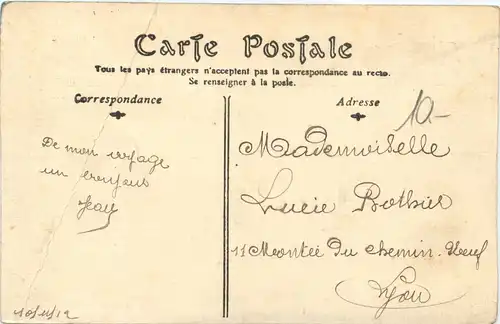 Carte Postale
Tous les pays étrangers n'acceptent pas la correspondance au recto.
Se renseigner à la poste.
Correspondance
Adresse
10-
De mon voyage
un bonjour
Jean
Mademoiselle
Lucie Bothier
11 Montée du chemin. Neuf
Lyon
10/11/12